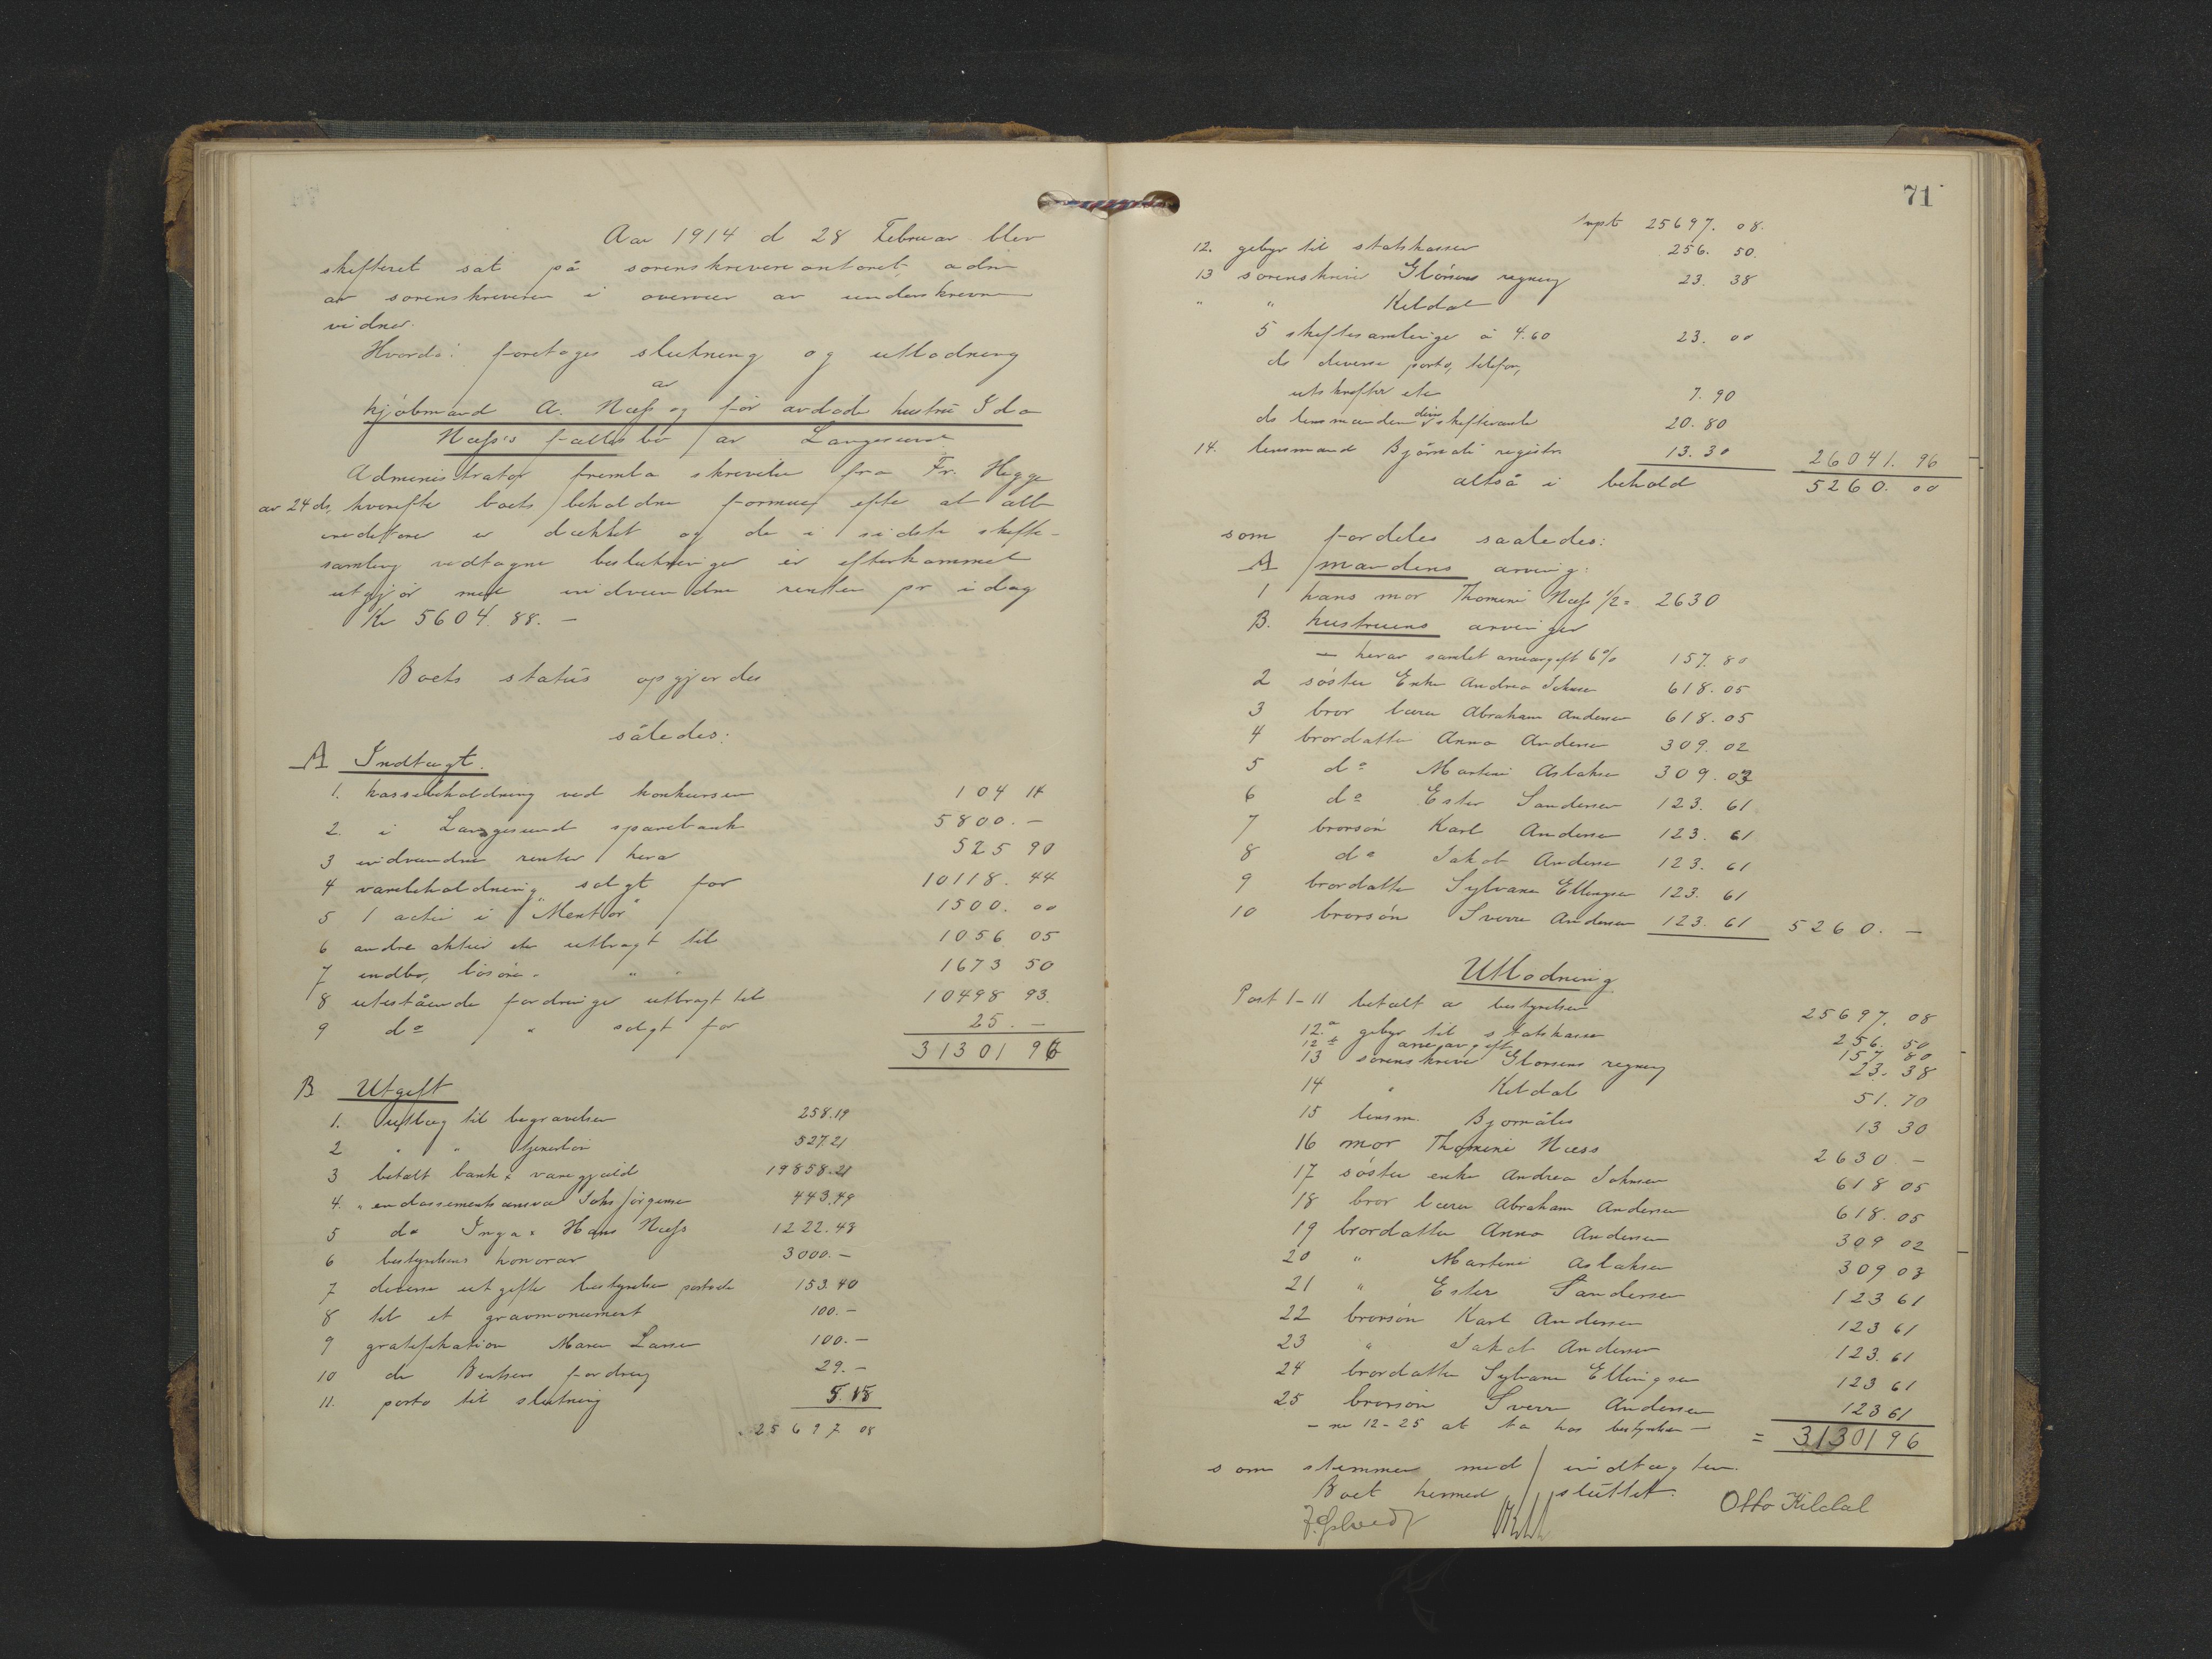 Aar 1914 d 28 Februar blev
skifteret sat på sorenskriverkontoret adm
av sorenskriveren i overvær av underskrevne
vidner.
Hvorda: foretoges slutning og utlodning
av
kjöbmand A. Næss og för avdöde hustru Ida
Næss's fællesbo av Langesund
Administrator fremla skrivelse fra Fr. Hegge
av 24 ds, hvorefter boets beholdne formue efter at alle
creditorer er dækket og de i sidste skifte-
samling vedtagne beslutninger er efterkommet
utgjör med indvundne renter pr idag
Kr 5604.88. –
Boets status opgjordes
således:
A Indtægt.
1. kassebeholdning ved konkursen 104 14
2. i Langesund sparebank 5800. –
3 indvundne renter herav 525 90
4 varebeholdning solgt for 10118. 44
5 1 actie i "Mentor" 1500. 00
6 andre aktier etc utbragt til 1056 05
7 indbo, lösöre " " 1673 50
8 utestående fordringer utbragt til 10498 93.
9 do " solgt for 25. –
31301 96
B Utgift
1. utlæg til begravelsen 258.19
2 " " 527.21
3 betalt bank & varegjæld 19858.21
4. " endossementsansvar Johs Jörgensen 443.49
5 do Inga & Hans Næss 1222.43
6 bestyrelsens honorar 3000.–
7 diverse utgifter bestyrelsen porto etc 153.40
8 til et gravmonument 100.–
9 gratifikation Maren Larsen 100.–
10 do Bentsens fordring 29.–
11. porto til slutning 5.15
25697 08
71
trpt 25697. 08.
12. gebyr til statskassen 256. 50.
13 sorenskriver Glörsens regning 23. 38
" " Kildal
5 skiftesamlinger à 4.60 23. 00
do diverse porto, telefon,
utskrifter etc 7. 90
do lensmanden div skiftevarsler 20. 80
14. lensmand Björnåli registr. 13. 30 26041. 96
altså i behold 5260. 00
som fordeles saaledes:
A mandens arving:
1 hans mor Thomine Næss 1/2 = 2630
B. hustruens arvinger
– herav samlet arveavgift 6% 157. 80
2 söster Enke Andrea Johnsen 618. 05
3 bror lærer Abraham Andersen 618. 05
4 brordatter Anna Andersen 309. 02
5 do Martine Aslaksen 309. 03
6 do Ester Sandersen 123. 61
7 brorsön Karl Andersen 123. 61
8 do Jakob Andersen 123. 61
9 brordatter Sylvane Ellingsen 123. 61
10 brorsön Sverre Andersen 123. 61 5260. –
Utlodning
Post 1–11 betalt av bestyrelsen 25697. 08
12.a gebyr til statskassen 256. 50
12 b arveavgift 157 80
13 sorenskriver Glörsens regning 23. 38
14 " Kildal 51. 70
15 lensm. Bjornåles 13 30
16 mor Thomine Næss 2630 –
17 söster enke Andrea Johnsen 618 05
18 bror lærer Abraham Andersen 618. 05
19 brordatter Anna Andersen 309 02
20 " Martine Aslaksen 309 03
21 " Ester Sandersen 123 61
22 brorsön Karl Andersen 123 61
23 " Jakob Andersen 123. 61
24 brordatter Sylvane Ellingsen 123 61
25 brorsön Sverre Andersen 123 61
– nr 12–25 at ta hos bestyrelsen – = 31301 96
som stemmer med indtægten.
Boet hermed sluttet.
Otto Kildal